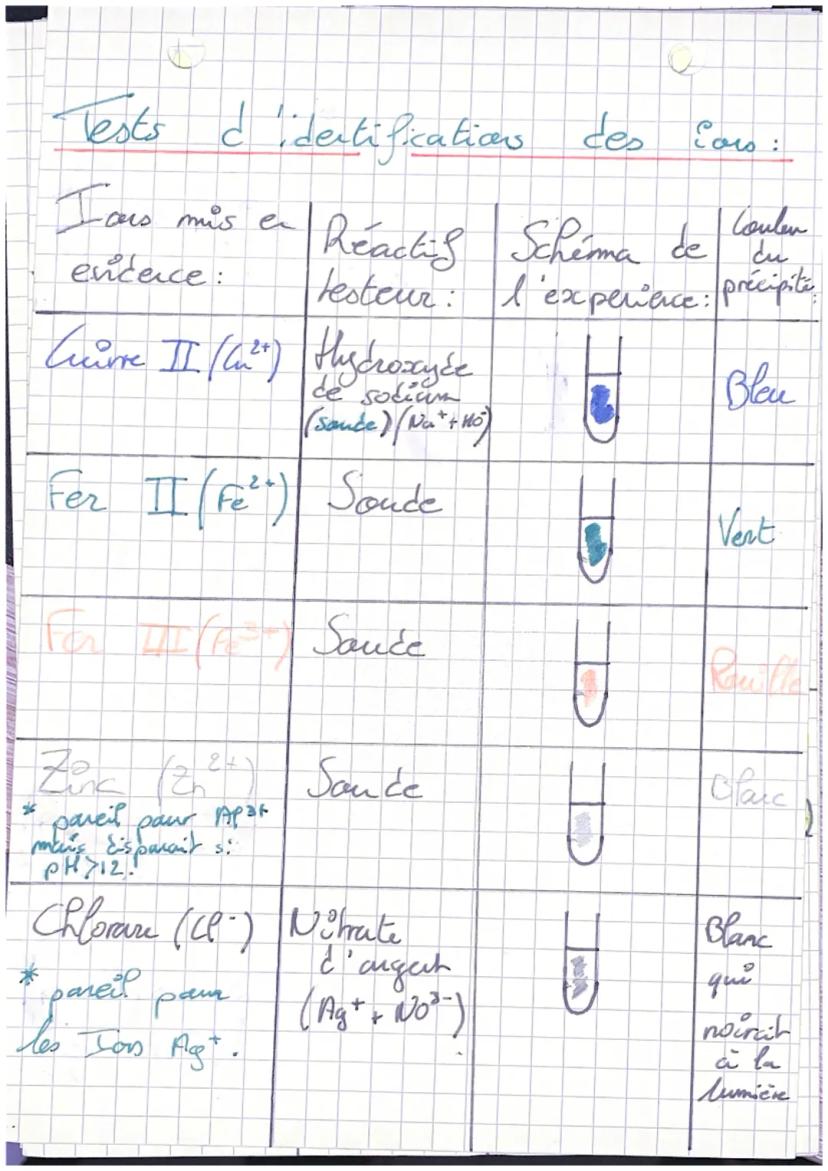 Tests d'identifications des ions :
Ions mis en
evidence :
Réactif
testeur :
Schéma de
l'experience :
Couleur
du
précipité :
Cuivre II (Cu²⁺)
Hydroxyde
de sodium
(soude) (Na⁺ + HO⁻)
Bleu
Fer II (Fe²⁺)
Soude
Vert
Fer III (Fe³⁺)
Soude
Rouille
Zinc (Zn²⁺)
* pareil pour Al³⁺
mais disparait si
pH >12 !
Soude
Blanc
Chlorure (Cl⁻)
* pareil pour
les Ions Ag⁺.
Nitrate
d'argent
(Ag⁺ + NO³⁻)
Blanc
qui
noircit
à la
lumière